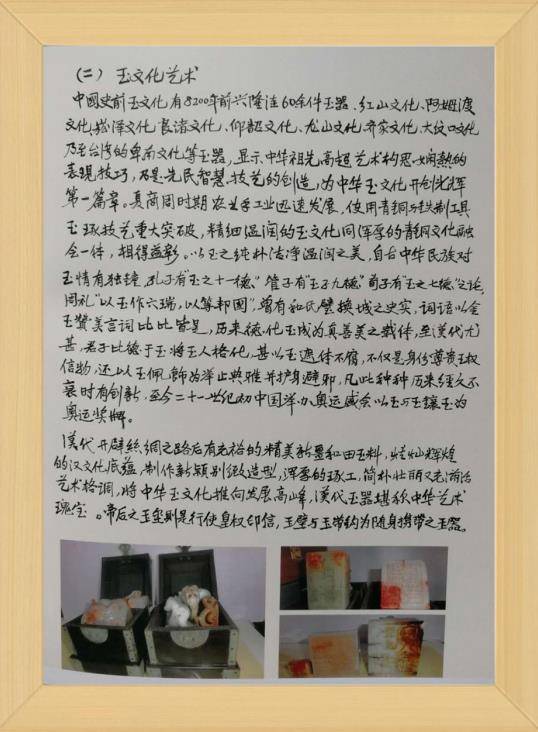 (二) 玉文化艺术
中國史前玉文化有8200年前兴隆洼60余件玉器、红山文化、阿姆渡
文化、崧泽文化、良渚文化、仰韶文化、龙山文化、齐家文化、大汶口文化
乃至台湾的卑南文化等玉器,显示中华祖先高超艺术构思、娴熟的
表现技巧,乃是先民智慧、技艺的创造,为中华玉文化开创光辉
第一篇章。夏商周时期农业手工业迅速发展,使用青铜与铁制工具
玉琢技艺重大突破,精细温润的玉文化同浑厚的青铜文化融
合一体,相得益彰。以玉之纯朴洁净温润之美,自古中华民族对
玉情有独钟,孔子有"玉之十一德",管子有"玉之九德"荀子有"玉之七德"之论,
周礼"以玉作六瑞,以等邦國",曾有和氏璧换城之史实,词语以金
玉赞美言词比比皆是,历来德化玉成为真善美之载体,至漢代尤
甚,君子比德于玉将玉人格化,甚以玉遮体不腐,不仅是身份尊贵玉权
信物,还以玉佩飾为洋止典雅并护身避邪,凡此种种历来经久不
衰时有创新,至今二十一世纪初中国洋办奥运盛会以玉与玉镶玉为
奥运奖牌。
漢代开辟丝绸之路后有充裕的精美新疆和田玉料,灿灿辉煌
的汉文化底蕴,制作新颖别致造型,浑厚的琢工,简朴壮丽又
艺术格调,将中华玉文化推向发展高峰,漢代玉器堪称中华艺术
瑰宝。帝后之玉玺则是行使皇权印信,玉璧与玉带钩为随身携带之玉器。